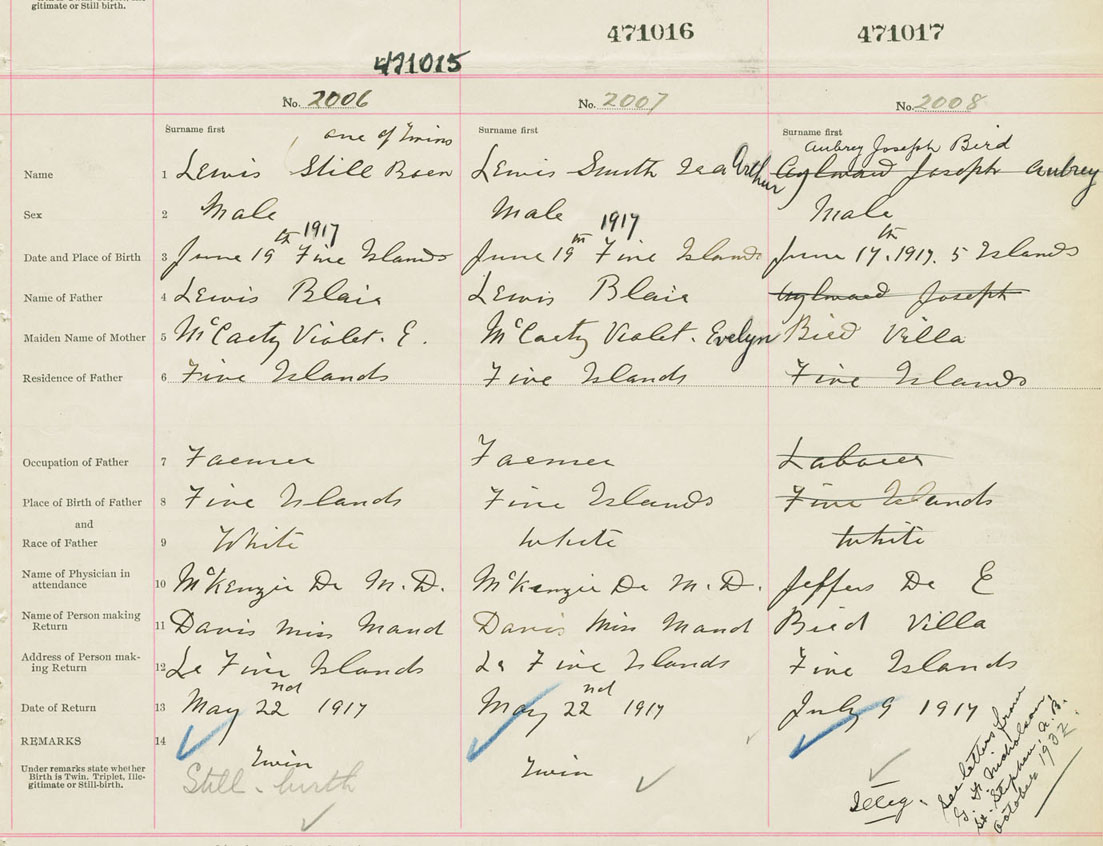 gitimate or Still birth.
471015
471016
471017
No. 2006
No. 2007
No. 2008
Surname first
one of Twins
Surname first
Surname first
Aubrey Joseph Bird
Name 1 Lewis Still Born
Lewis Smith Arthur
Aylward Joseph Aubrey
Sex 2 Male
Male
Male
Date and Place of Birth 3 June 19th 1917 Five Islands
June 19th 1917 Five Islands
June 17th. 1917. 5 Islands
Name of Father 4 Lewis Blair
Lewis Blair
Aylward Joseph
Maiden Name of Mother 5 McCarty Violet. E.
McCarty Violet. Evelyn
Bird Villa
Residence of Father 6 Five Islands
Five Islands
Five Islands
Occupation of Father 7 Farmer
Farmer
Laborer
Place of Birth of Father 8 Five Islands
Five Islands
Five Islands
and
Race of Father 9 White
White
White
Name of Physician in
attendance 10 McKenzie Dr M.D.
McKenzie Dr M.D.
Jeffers Dr E
Name of Person making
Return 11 Davis Miss Maud
Davis Miss Maud
Bird Villa
Address of Person mak-
ing Return 12 Lr Five Islands
Lr Five Islands
Five Islands
Date of Return 13 May 22nd 1917
May 22nd 1917
July 9 1917
REMARKS 14
Under remarks state whether
Birth is Twin, Triplet, Ille-
gitimate or Still-birth.
Twin
Still-birth
Twin
Illeg.
See letters from
G. H. Nicholson,
St. Stephen, N.B.
October 1932.